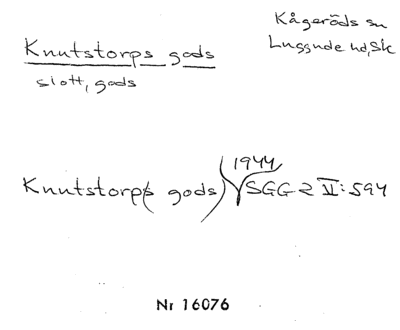 Kågeröds sn
Luggude hd, Sk
Knutstorps gods
slott, gods
1944
Knutstorps gods) SGG 2 II:594
Nr 16076